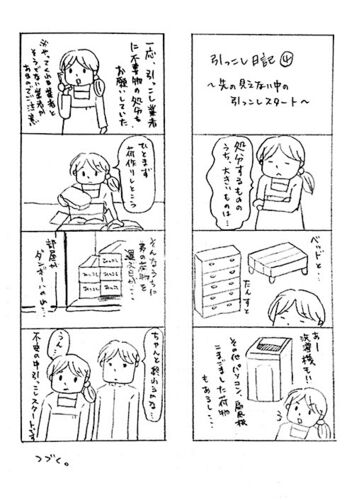 引っこし日記④
〜先の見えない中の
引っこしスタート〜
処分するものの
うち、大きいものは…
ベッドと、
たんすと
あー
洗濯機も!!
その他パソコン、扇風機
こまごました荷物
もあるし、…
一応、引っこし業者
に不要物の処分も
お願いしていた
やってくれる業者と
そうでない業者が
あるのでご注意
ひとまず
荷作りしとこっ
そんなうちに
運ぶ日が…
部屋が
ダンボールの山…
ちゃんと終わるのかな…
うーん…
不安の中引っこしスタートです
つづく。